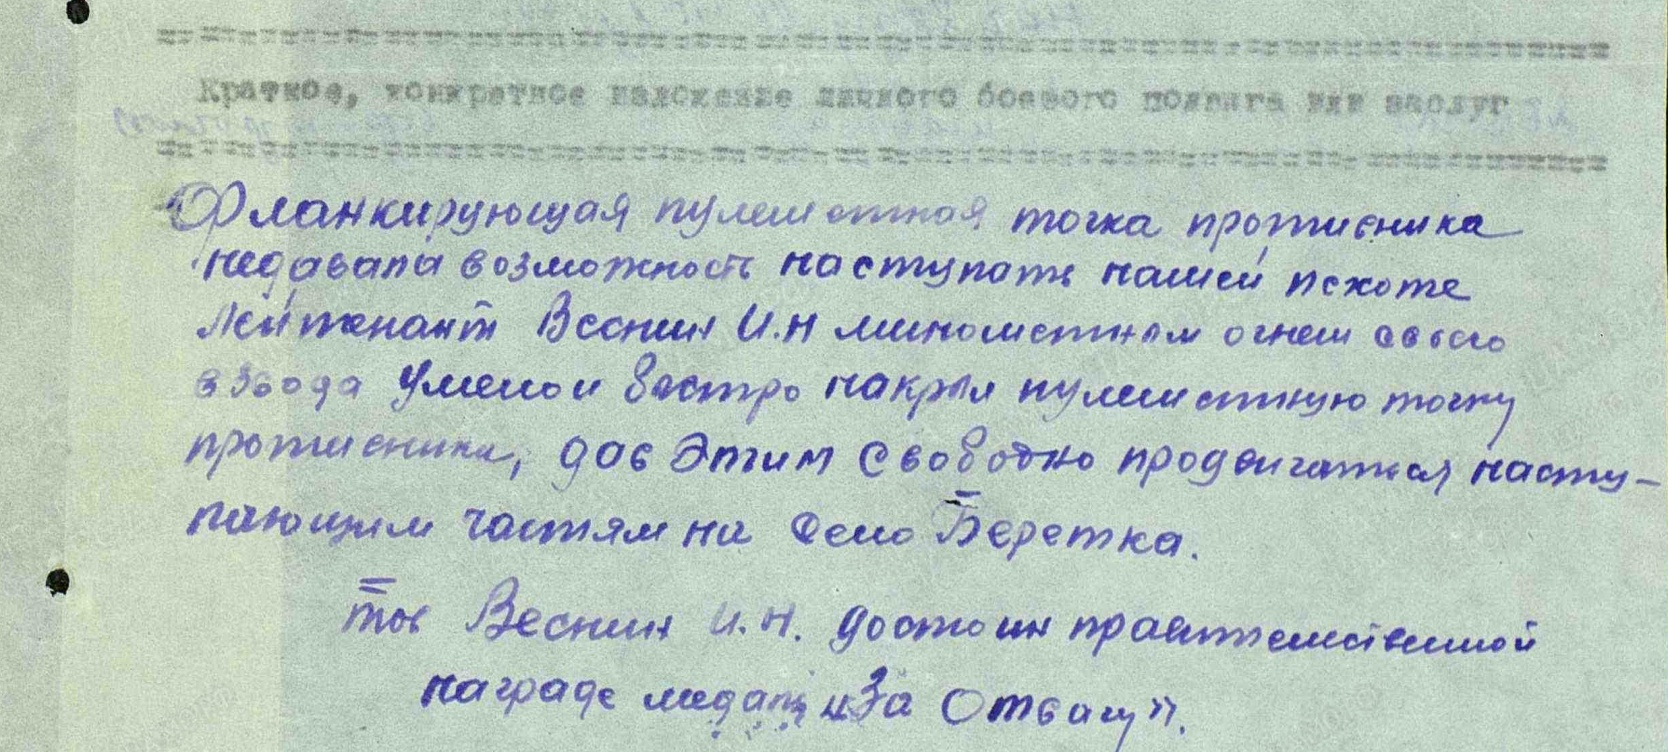 Краткое, конкретное изложение личного боевого подвига или заслуг
Фланкирующая пулеметная точка противника
недавала возможность наступать нашей пехоте
Лейтенант Веснин И.Н минометным огнем своего
взвода умело и быстро накрыл пулеметную точку
противника, дав этим свободно продвигаться насту-
пающим частям на село Беретка.
тов Веснин И.Н. достоин правительственной
награде медаль „За Отвагу".